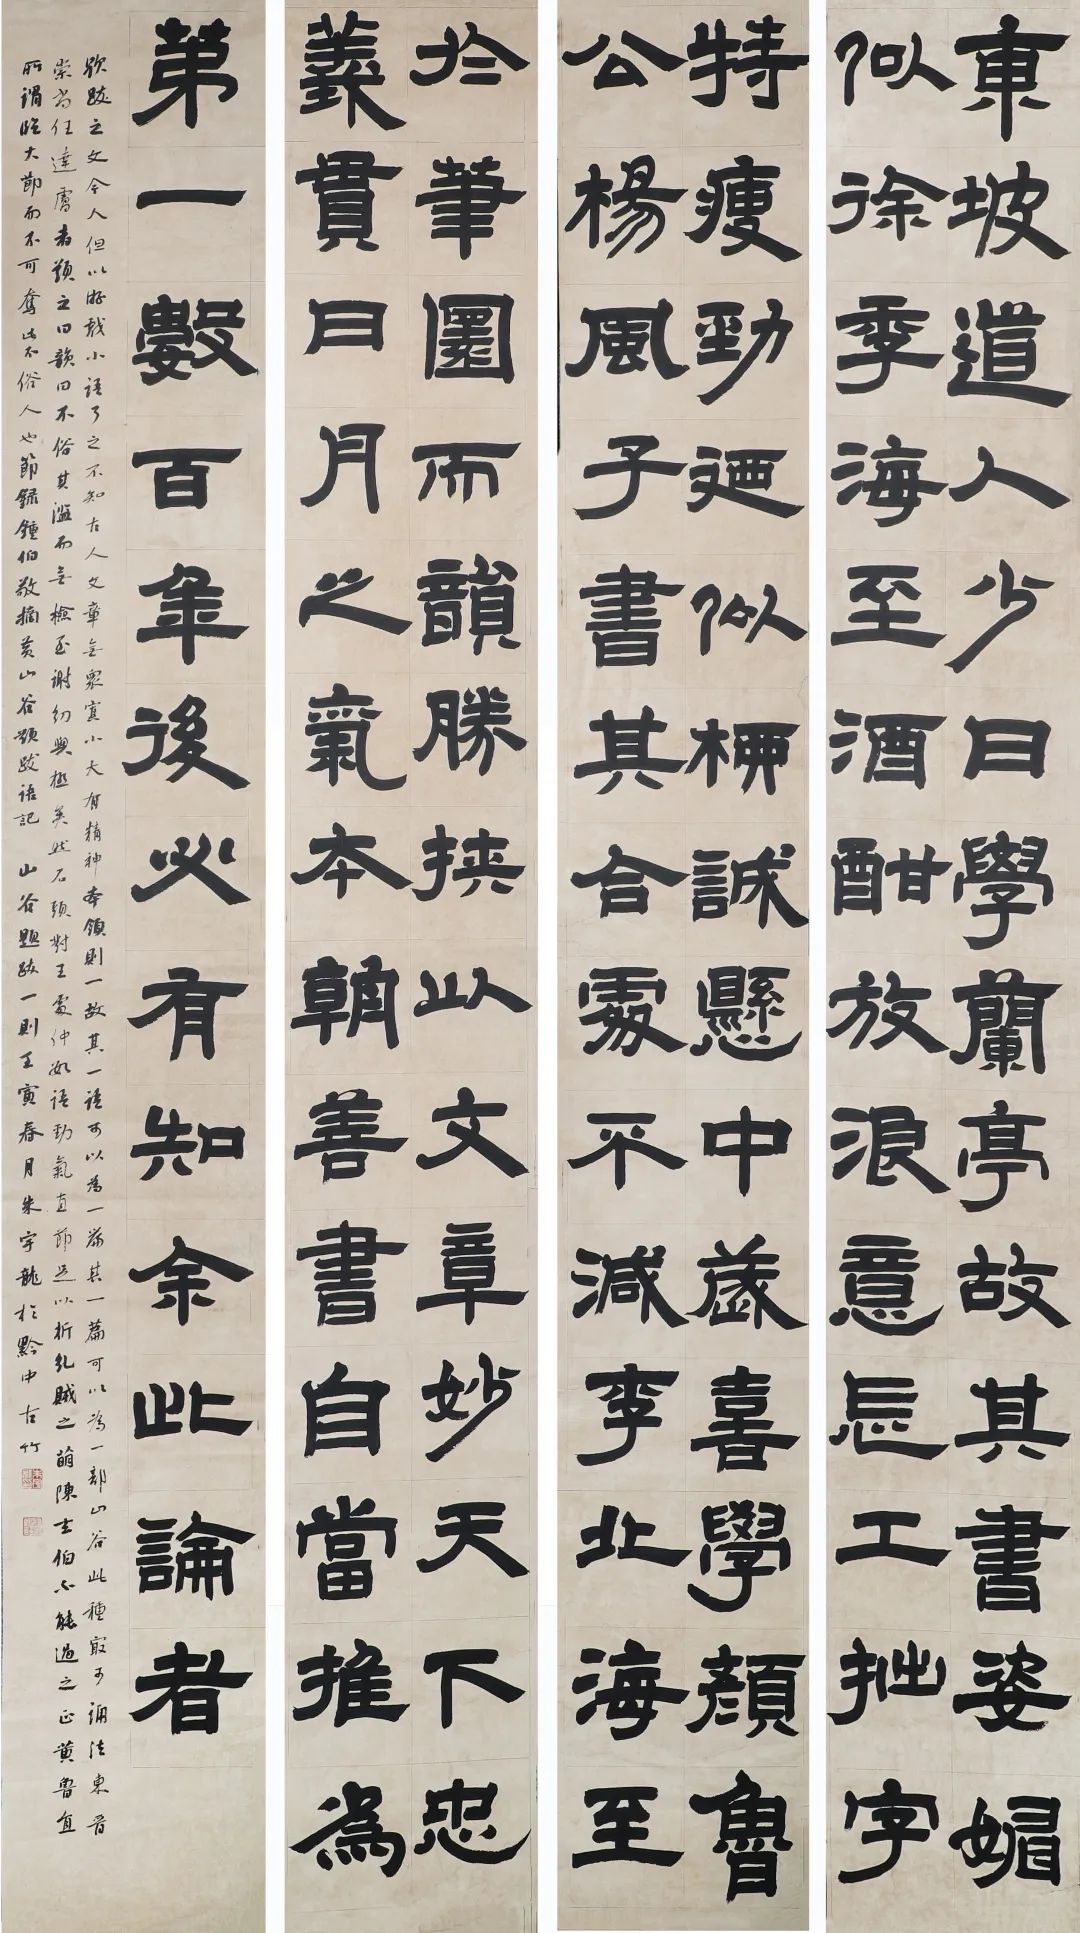 東坡道人少日學蘭亭故其書姿媚
似徐季海至酒酣放浪意忘工拙字
特瘦勁迺似柳誠懸中歲喜學顏魯
公楊風子書其合處不減李北海至
於筆圜而韻勝挾以文章妙天下忠
義貫日月之氣本朝善書自當推為
第一數百年後必有知余此論者
題跋之文今人但以游戲小語了之不知古人文章無眾寡小大有精神本領則一故其一語可以為一篇其一篇可以為一部山谷此種最可誦法東晉
崇尚任達膚者題之曰韻曰不俗其濫而無檢至謝幼輿極矣然石頭對王處仲數語勁氣直節足以折亂賊之萌陳玄伯不能過之正黃魯直
所謂臨大節而不可奪此不俗人也節錄鍾伯敬摘黃山谷題跋語記 山谷題跋一則壬寅春月朱宇龍於黔中古竹